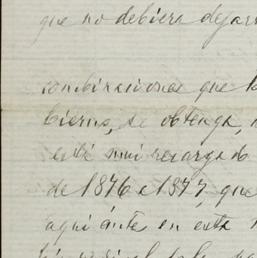 que no debiera dejar
combinaciones que l
bierno, se obtenga,
esté mui recargado
de 1876 a 1877, que
aquí ántes en esta